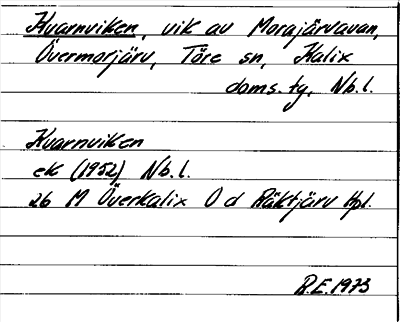 Kvarnviken, vik av Morajärvavan,
Övermorjärv, Töre sn, Kalix
doms. tg, Nb. l.
Kvarnviken
ek (1952) Nb. l.
26 M Överkalix O d Räktjärv Hpl.
R.E. 1973